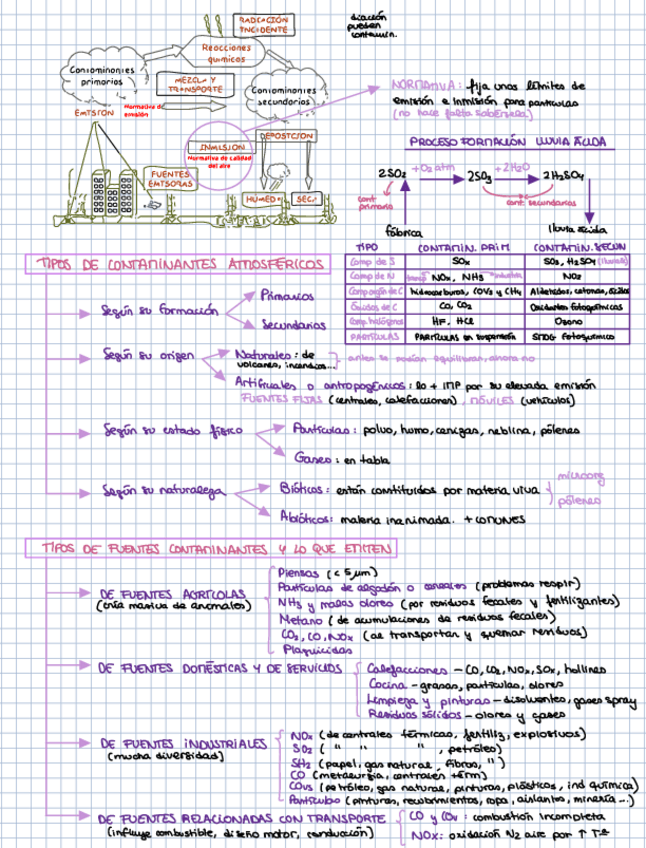 RADIACIÓN
INCIDENTE
diación
pueden
contamin.
Reacciones
químicas
Contaminantes
primarios
MEZCLA Y
TRANSPORTE
Contaminantes
secundarios
EMISION
Normativa de
emisión
NORMATIVA: fija unos límites de
emisión e inmisión para partículas
(no hace falta sabérsela)
INMISION
Normativa de calidad
del aire
DEPOSICION
FUENTES
EMISORAS
HUMEDA
SECA
PROCESO FORMACIÓN LLUVIA ÁCIDA
2SO2 +O2 atm 2SO3 +2H2O 2H2SO4
cont.
primario
cont. secundarios
fábrica
lluvia ácida
TIPO CONTAMIN. PRIM CONTAMIN. SECUN
Comp de S SOx SO3, H2SO4 (lluvia)
Comp de N NOx, NH3 NO2
Comp orgán de C hidrocarburos, COVs y CH4 Aldehidos, cetonas, ácidos
Óxidos de C CO, CO2 Oxidantes fotoquímicos
Comp. halógenos HF, HCl Ozono
PARTÍCULAS PARTÍCULAS en suspensión SMOG fotoquímico
TIPOS DE CONTAMINANTES ATMOSFÉRICOS
Según su formación
Primarios
Secundarios
Según su origen
Naturales: de
volcanes, incendios...
antes se podían equilibrar, ahora no
Artificiales o antropogénicos: lo + IMP por su elevada emisión
FUENTES FIJAS (centrales, calefacciones), MÓVILES (vehículos)
Según su estado físico
Partículas: polvo, humo, cenizas, neblina, pólenes
Gases: en tabla
Según su naturaleza
Bióticos: están constituidos por materia viva
microorg
pólenes
Abióticos: materia inanimada. + COMUNES
TIPOS DE FUENTES CONTAMINANTES Y LO QUE EMITEN
DE FUENTES AGRÍCOLAS
(cría masiva de animales)
Piensos (< 5 μm)
Partículas de algodón o cereales (problemas respir)
NH3 y malos olores (por residuos fecales y fertilizantes)
Metano (de acumulaciones de residuos fecales)
CO2, CO, NOx (al transportar y quemar residuos)
Plaguicidas
DE FUENTES DOMÉSTICAS Y DE SERVICIOS
Calefacciones – CO, CO2, NOx, SOx, hollines
Cocina – grasas, partículas, olores
Limpieza y pinturas – disolventes, gases spray
Residuos sólidos – olores y gases
DE FUENTES INDUSTRIALES
(mucha diversidad)
NOx (de centrales térmicas, fertiliz, explosivos)
SO2 ( " " " , petróleo)
SH2 (papel, gas natural, fibras, ")
CO (metalurgia, centrales térm)
COVs (petróleo, gas natural, pinturas, plásticos, ind química)
Partículas (pinturas, recubrimientos, ropa, aislantes, minería...)
DE FUENTES RELACIONADAS CON TRANSPORTE
(influye combustible, diseño motor, conducción)
CO y COV: combustión incompleta
NOx: oxidación N2 aire por ↑ Tª